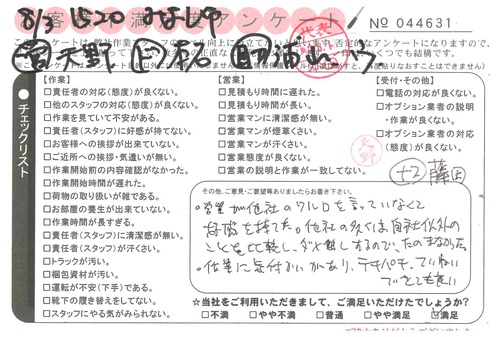 お客様満足度アンケート
8/3 15:20
№ 044631
チェックリスト
【作業】
□責任者の対応(態度)が良くない。
□他のスタッフの対応(態度)が良くない。
□作業を見ていて不安がある。
□責任者(スタッフ)に好感が持てない。
□お客様への挨拶が出来ていない。
□ご近所への挨拶・気遣いが無い。
□作業開始前の内容確認がなかった。
□作業開始時間が遅れた。
□荷物の取り扱いが雑である。
□お部屋の養生が出来ていない。
□作業時間が長すぎる。
□責任者(スタッフ)に清潔感が無い。
□責任者(スタッフ)が汗くさい。
□トラックが汚い。
□梱包資材が汚い。
□運転が不安(下手)である。
□靴下の履き替えをしてない。
□スタッフにやる気がみられない。
【営業】
□見積もり時間に遅れた。
□見積もり時間が長い。
□営業マンに清潔感が無い。
□営業マンが煙草くさい。
□営業マンが汗くさい。
□営業態度が良くない。
□営業の説明と作業が一致してない。
【受付・その他】
□電話の対応が良くない。
□オプション業者の説明
・作業が良くない。
□オプション業者の対応
(態度)が良くない。
天野
その他、ご意見・ご要望等ありましたらお書き下さい。
・営業が他社のワルロを言っていなくて
好感を持てた。他社の多くは自社以外の
ことを比較し、ダメ出しするので、たのまなかった。
・作業に気付かいがあり、テキパキ、ていねい
でとても良い
☆当社をご利用いただきまして、ご満足いただけたでしょうか?
□不満 □やや不満 □普通 □やや満足 ☑満足